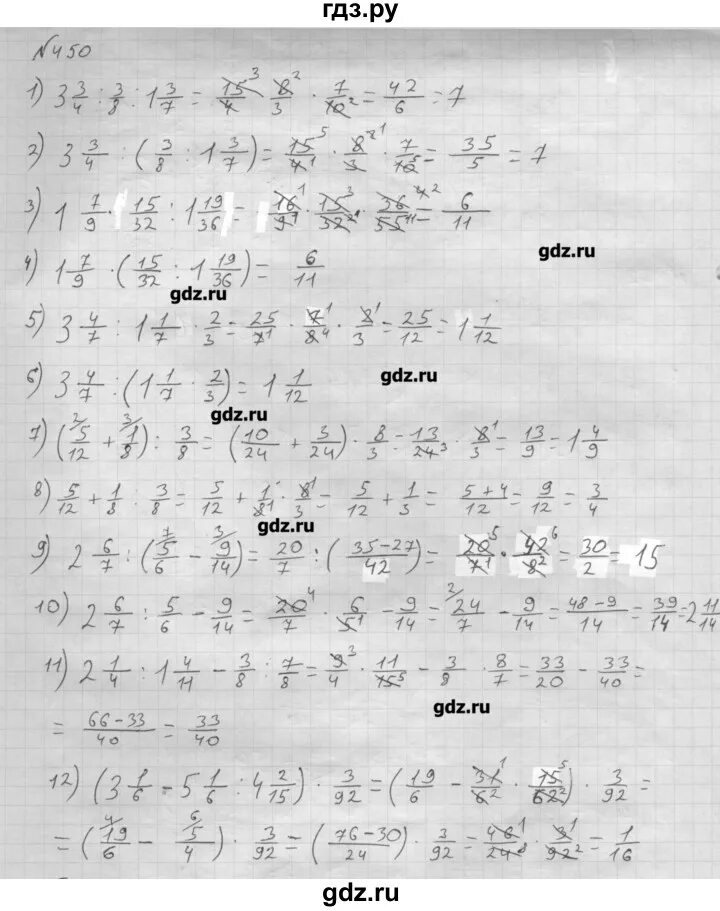 гдз.ру
№450
1) 3 3/4 : 3/8 : 1 3/7 = 15/4 · 8/3 · 7/10 = 42/6 = 7
2) 3 3/4 : (3/8 : 1 3/7) = 15/4 · 8/3 · 7/10 = 35/5 = 7
3) 1 7/9 · 15/32 : 1 19/36 = 16/9 · 15/32 · 36/55 = 6/11
4) 1 7/9 · (15/32 : 1 19/36) = 6/11
gdz.ru
5) 3 4/7 : 1 1/7 · 2/3 = 25/7 · 7/8 · 8/3 = 25/12 = 1 1/12
6) 3 4/7 : (1 1/7 · 2/3) = 1 1/12
gdz.ru
gdz.ru
7) (5/12 + 1/8) : 3/8 = (10/24 + 3/24) · 8/3 = 13/24 · 8/3 = 13/9 = 1 4/9
8) 5/12 + 1/8 : 3/8 = 5/12 + 1/8 · 8/3 = 5/12 + 1/3 = 5+4/12 = 9/12 = 3/4
gdz.ru
9) 2 6/7 : (5/6 - 9/14) = 20/7 : (35-27/42) = 20/7 · 42/8 = 30/2 = 15
10) 2 6/7 : 5/6 - 9/14 = 20/7 · 6/5 - 9/14 = 24/7 - 9/14 = 48-9/14 = 39/14 = 2 11/14
11) 2 1/4 : 1 4/11 - 3/8 : 7/8 = 9/4 · 11/15 - 3/8 · 8/7 = 33/20 - 33/40 =
gdz.ru
= 66-33/40 = 33/40
12) (3 1/6 - 5 1/6 : 4 2/15) · 3/92 = (19/6 - 31/6 · 15/62) · 3/92 =
= (19/6 - 5/4) · 3/92 = (76-30/24) · 3/92 = 46/24 · 3/92 = 1/16
gdz.ru